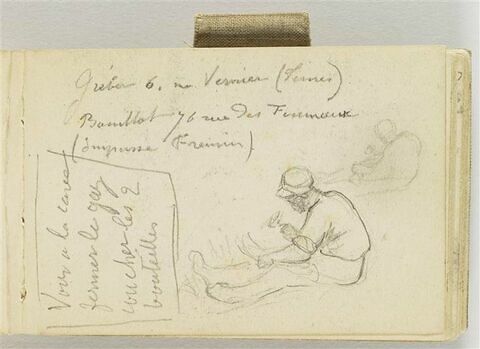 Gréber 6. rue Vernier (Ternes)
Bouillot 76 rue des Fourneaux
(impasse Fremin)
Voir à la cave
fermer le gaz
coucher les 2
bouteilles